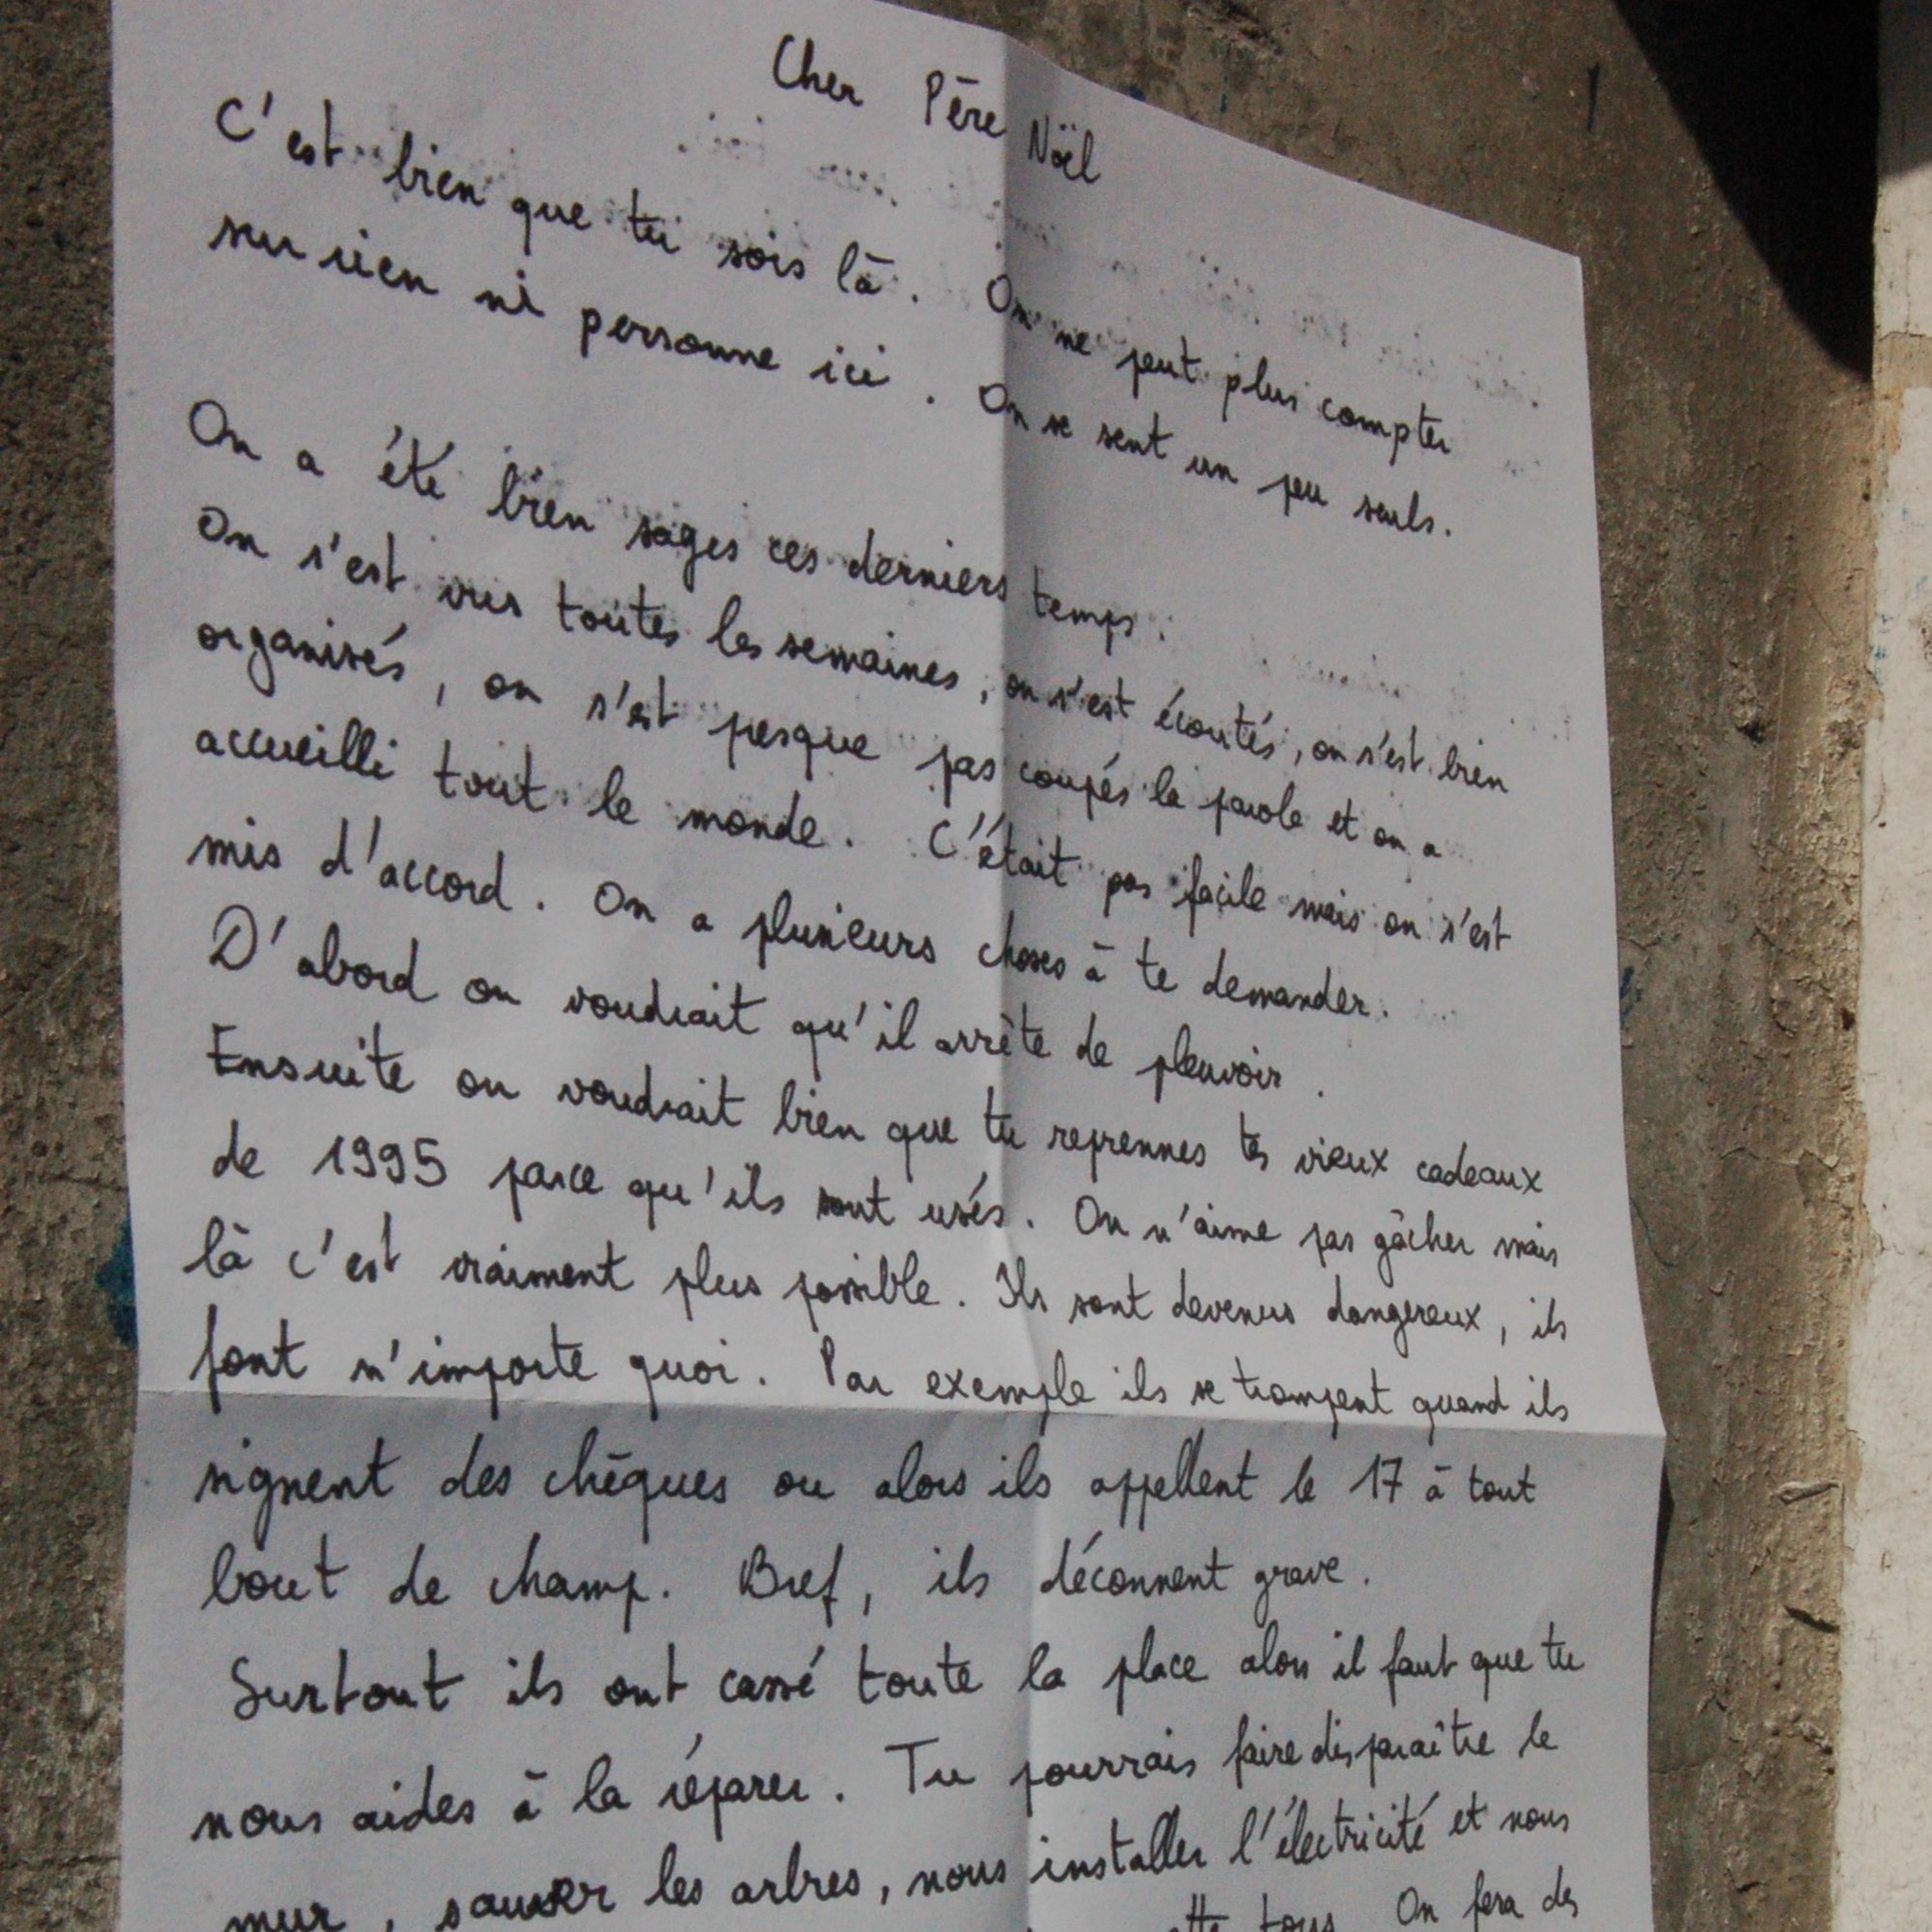 Cher Père Nöel
C'est bien que tu sois là. On ne peut plus compter
sur rien ni personne ici. On se sent un peu seuls.
On a été bien sages ces derniers temps.
On s'est vus toutes les semaines, on s'est écoutés, on s'est bien
organisés, on s'est presque pas coupés la parole et on a
accueilli tout le monde. C'était pas facile mais on s'est
mis d'accord. On a plusieurs choses à te demander.
D'abord on voudrait qu'il arrête de pleuvoir.
Ensuite on voudrait bien que tu reprennes tes vieux cadeaux
de 1995 parce qu'ils sont usés. On n'aime pas gâcher mais
là c'est vraiment plus possible. Ils sont devenus dangereux, ils
font n'importe quoi. Par exemple ils se trompent quand ils
signent des chèques ou alors ils appellent le 17 à tout
bout de champ. Bref, ils déconnent grave.
Surtout ils ont cassé toute la place alors il faut que tu
nous aides à la réparer. Tu pourrais faire disparaître le
mur, sauver les arbres, nous installer l'électricité et nous
tous. On fera des